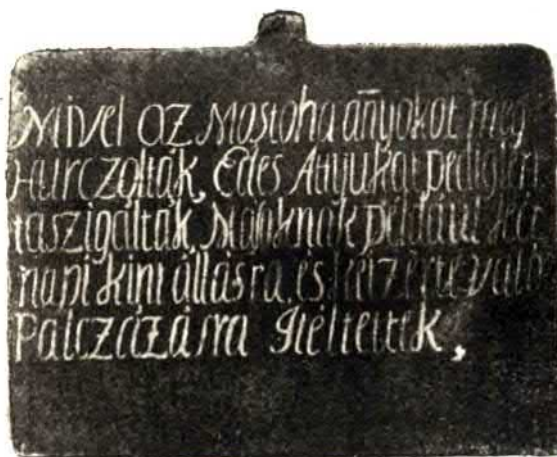 Mivel az Mostoha añyokot meg
Hurczolták, Edes Attyukat pedig
taszigálták, Másoknak például két
napi kint állásra, és kétzerte való
Palczázásra Itéltettek,